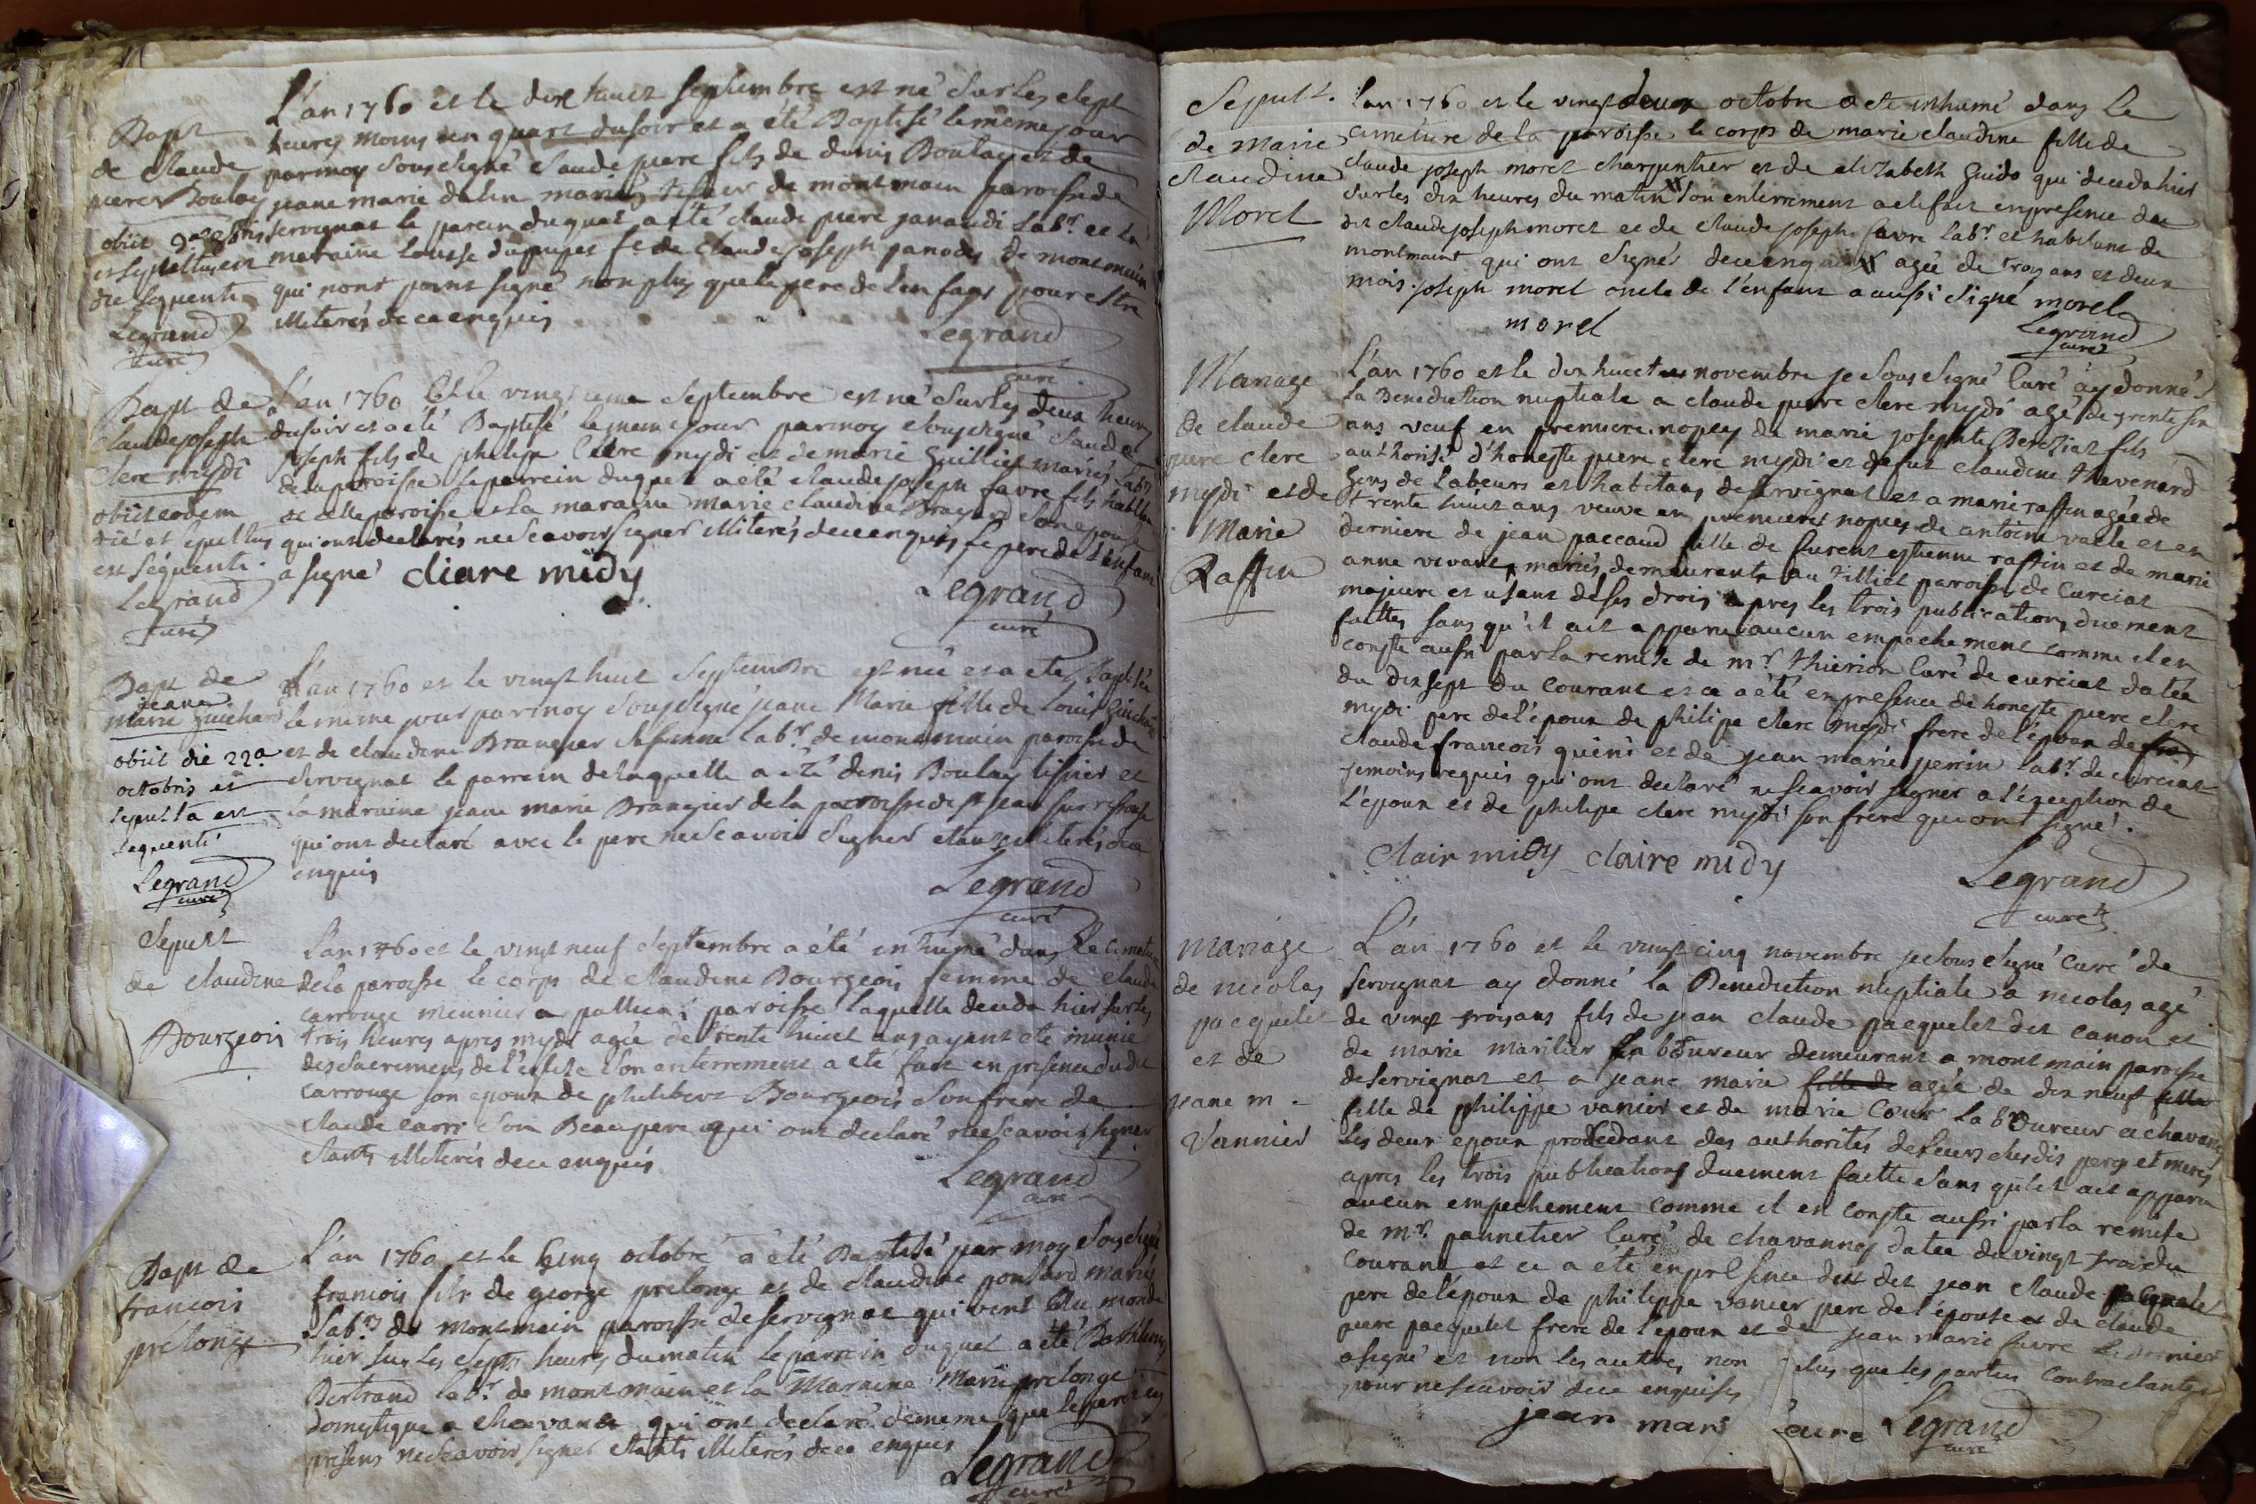 Bapt
de claude
pierre Boulay
obiit
et sepultus est
die sequenti
Legrand
curé
L'an 1760 et le dix huict septembre est né sur les sept
heures moins un quart du soir et a été Baptisé le même jour
par moy soussigné claude pierre fils de denis Boulay et de
jeane marie dalin mariés tissier de montmain paroisse de
servignat le parein duquel a été claude piere janaudi labr. et la
maraine louise dupuget fe de claude joseph panodes de montmain
qui nont point signé non plus que le pere de l'enfant pour estre
illiterés de ce enquis
Legrand
curé
Bapt de
claude joseph
clerc mydi
obiit eodem
die et sepultus
est sequenti.
Legrand
curé
L'an 1760 et le vingtieme septembre est né sur les deux heures
du soir et a été Baptisé le meme jour par moy soussigné claude
joseph fils de philipe clerc mydi et de marie guillin mariés labrs
de la paroisse le parrein duquel a été claude joseph favre fils habitan
de cette paroisse et la maraine marie claudine son epouse
qui ont declarés ne scavoir signer illiterés de ce enquis le pere de l'enfant
a signé claire midy
Legrand
curé
Bapt de
jeane
marie guichard
obiit die 22a
octobris et
sepulta est
sequenti
Legrand
curé
L'an 1760 et le vingt huit septembre est née et a eté Baptisée
le meme jour par moy soussigné jeane Marie fille de Louis guichard
et de claudine Brangier sa femme labr. de montmain paroisse de
servignat le parrein de laquelle a été denis Boulay tissier et
la maraine jeane marie Brangier de la paroisse de st jean sur ressouse
qui ont declaré avec le pere ne scavoir signer etans illiterés de ce
enquis
Legrand
curé
Sepult
de claudine
Bourgeois
L'an 1760 et le vingt neuf septembre a été inhumé dans le cimetiere
de la paroisse le corps de claudine Bourgeois femme de claude
carrouge meunier a paroisse laquelle deceda hier sur les
trois heures apres mydi agée de trente huict ans ayant eté munie
des sacremens de l'eglise son enterrement a eté fait en presence dudit
carrouge son epoux de philibert Bourgeois son frere de
claude carri son Beaupere qui ont declaré ne scavoir signer
étants illiterés de ce enquis
Legrand
curé
Bapt de
francois
prelonge
L'an 1760 et le cinq octobre a été Baptisé par moy soussigné
francois fils de george prelonge et de claudine ponsard mariés
labrs de montmain paroisse de servignat qui vient au monde
hier sur les septs heures du matin le parrein duquel a été
Bertrand labr. de montmain et la Maraine Marie prelonge
domestique a chavanes qui ont declaré de meme que le pere icy
present ne scavoir signer etants illiterés de ce enquis
Legrand
curé
Sepult.
de Marie
claudine
Morel
L'an 1760 et le vingt deux octobre a eté inhumé dans le
cimetiere de la paroisse le corps de marie claudine fille de
claude joseph morel charpentier et de elizabeth guido qui deceda hier
sur les dix heures du matin son enterrement a eté fait en presence du
dit claude joseph morel et de claude joseph favre labr. et habitant de
montmain qui ont signés de ce enquis agée de trois ans et deux
mois. joseph morel oncle de l'enfant a aussi signé morel
morel
Legrand
curé
Mariage
de claude
piere clerc
mydi et de
Marie
Raffin
L'an 1760 et le dix huict novembre je soussigné curé ay donné
la Benediction nuptiale a claude pierre clerc mydi agé de trente six
ans veuf en premiere nopces de marie josephte Bereziat fils
authorisé d'honeste piere clerc mydi et defunt claudine thevenard
gens de labeurs et habitans de servignat et a marie raffin agée de
trente huict ans veuve en premieres nopces de antoine vaele et en
derniere de jean paccaud fille de furent estienne raffin et de marie
anne vivant mariés demeurante au tilliet paroisse de curciat
majeure et usant de ses drois apres les trois publications duement
faittes sans qu'il ait apparu aucun empechement comme il en
conste aussi par la remise de mr. thierion curé de curciat datée
du dix sept du courant et ce a été en presence de honeste piere clerc
mydi pere de l'epoux de philipe clerc mydi frere de l'epoux de
claude francois quini et de jean marie perrin labr. de curciat
temoins requis qui ont declaré ne scavoir signer a l'exception de
l'epoux et de philipe clerc mydi son frere qui ont signé.
Clair midy claire midy
Legrand
curé
mariage
de nicolas
pacquelet
et de
jeane m.
Vannier
L'an 1760 et le vingt cinq novembre je soussigné curé de
servignat ay donné la Benediction nuptiale a nicolas agé
de vingt trois ans fils de jean claude pacquelet dit canon et
de marie marilier laboureur demeurant a montmain paroisse
de servignat et a jeane marie fille de agée de dix neuf
fille de philippe vanier et de marie cour laboureur a chavanes
les deux epoux procedant des authorités de leurs susdis peres et meres
apres les trois publications duement faitte sans qu'il ait apparu
aucun empechement comme il en conste aussi par la remise
de mr. pannetier curé de chavannes datée du vingt trois du
courant et ce a été en presence du dit jean claude pacquelet
pere de l'epoux de philippe vanier pere de l'epouse et de claude
piere pacquelet frere de l'epoux et de jean marie favre le dernier
a signé et non les autres non plus que les parties contractantes
pour ne scavoir de ce enquises
jean mari favre Legrand
curé